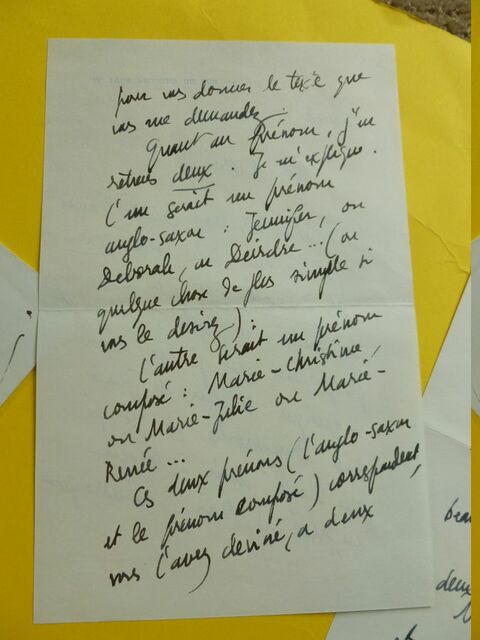 pour vous donner le texte que
vous me demandez.
Quant au Prénom, j'en
retiens deux. Je m'explique.
L'un serait un prénom
anglo-saxon : Jennifer, ou
Deborah, ou Deirdre... (ou
quelque chose de plus simple si
vous le desirez) :
L'autre serait un prénom
composé : Marie-Christine,
ou Marie-Julie ou Marie-
Renée ...
Ces deux prénoms (l'anglo-saxon
et le prénom composé) correspondent,
vous l'avez deviné, a deux
deux